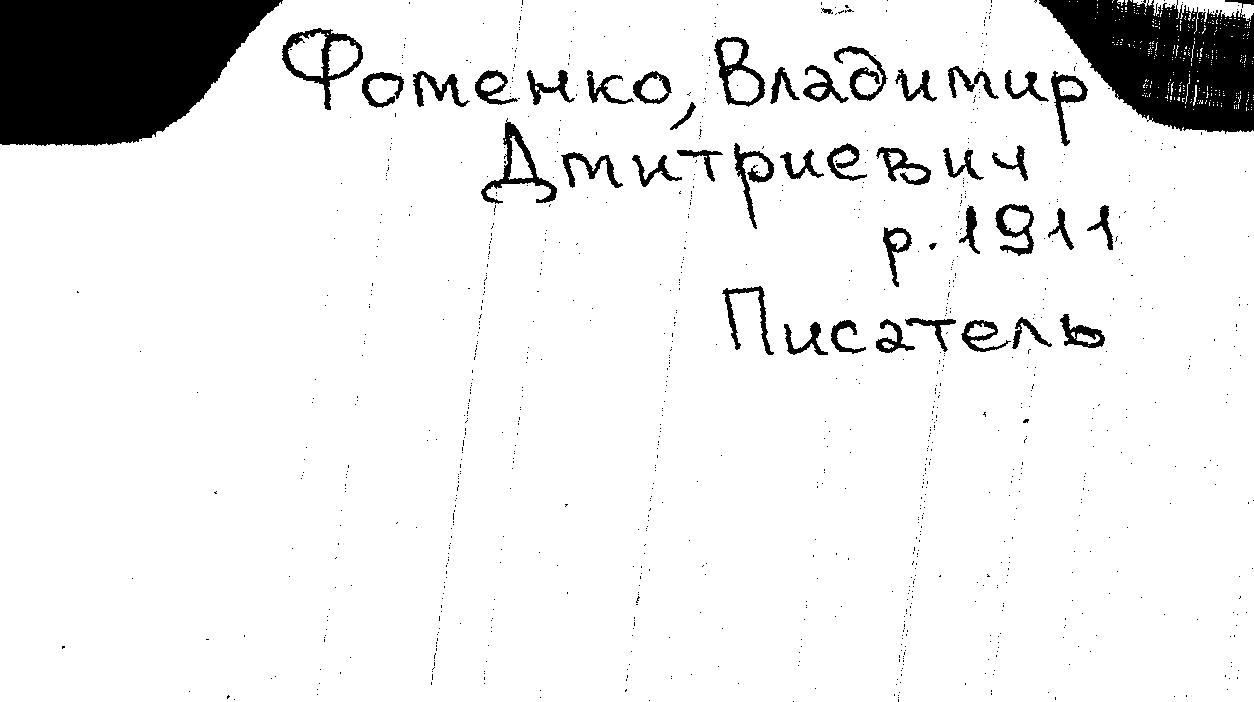 Фоменко, Владимир
Дмитриевич
р. 1911
Писатель